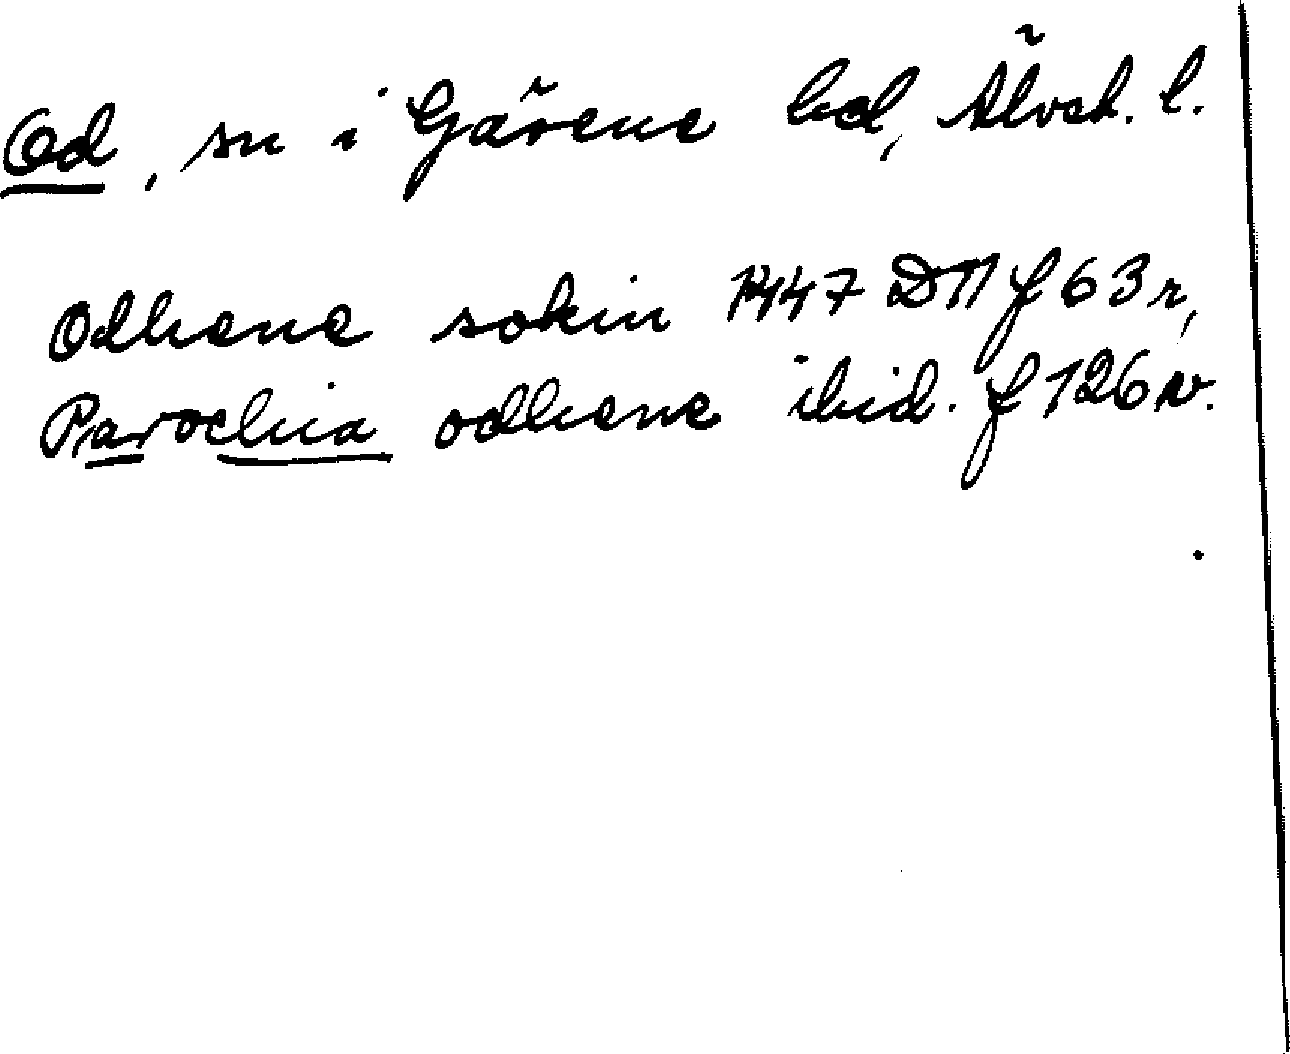 Od, sn i Gäsene hd, Älvsb. l.
Odhene sokin 1447 D11 f 63 r,
Parochia odhene ibid. f 126 v.